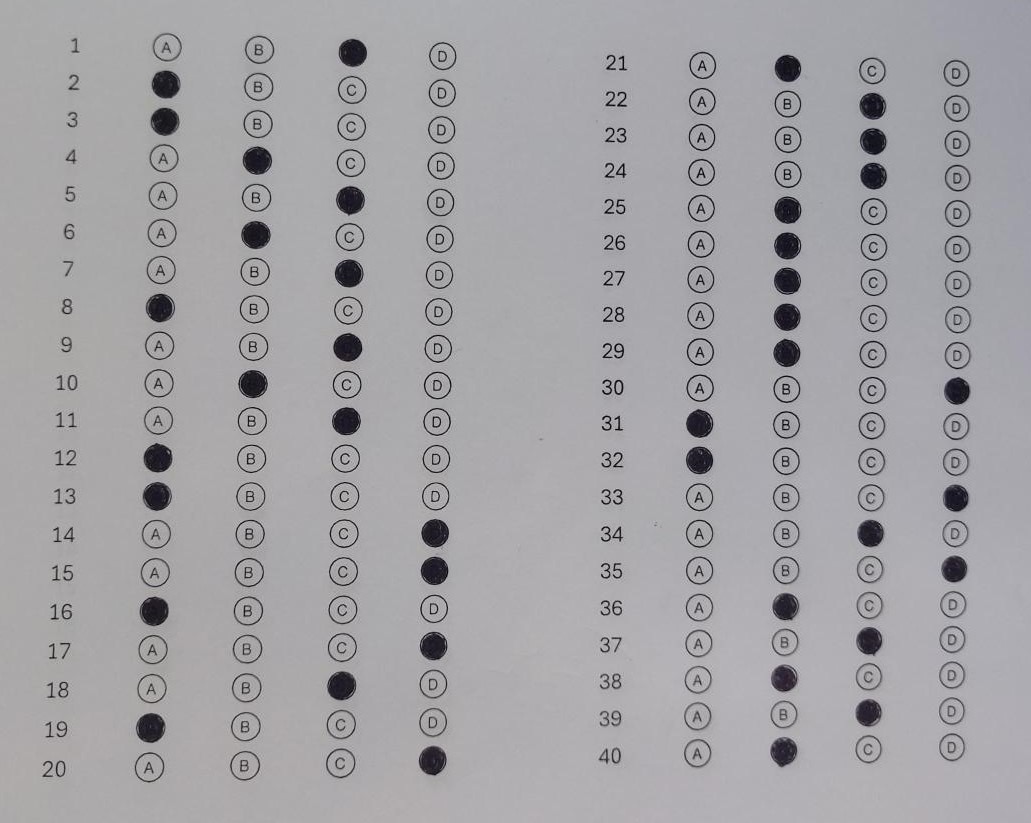 1 A B D
2 B C D
3 B C D
4 A C D
5 A B D
6 A C D
7 A B D
8 B C D
9 A B D
10 A C D
11 A B D
12 B C D
13 B C D
14 A B C
15 A B C
16 B C D
17 A B C
18 A B D
19 B C D
20 A B C
21 A C D
22 A B D
23 A B D
24 A B D
25 A C D
26 A C D
27 A C D
28 A C D
29 A C D
30 A B C
31 B C D
32 B C D
33 A B C
34 A B D
35 A B C
36 A C D
37 A B D
38 A C D
39 A B D
40 A C D